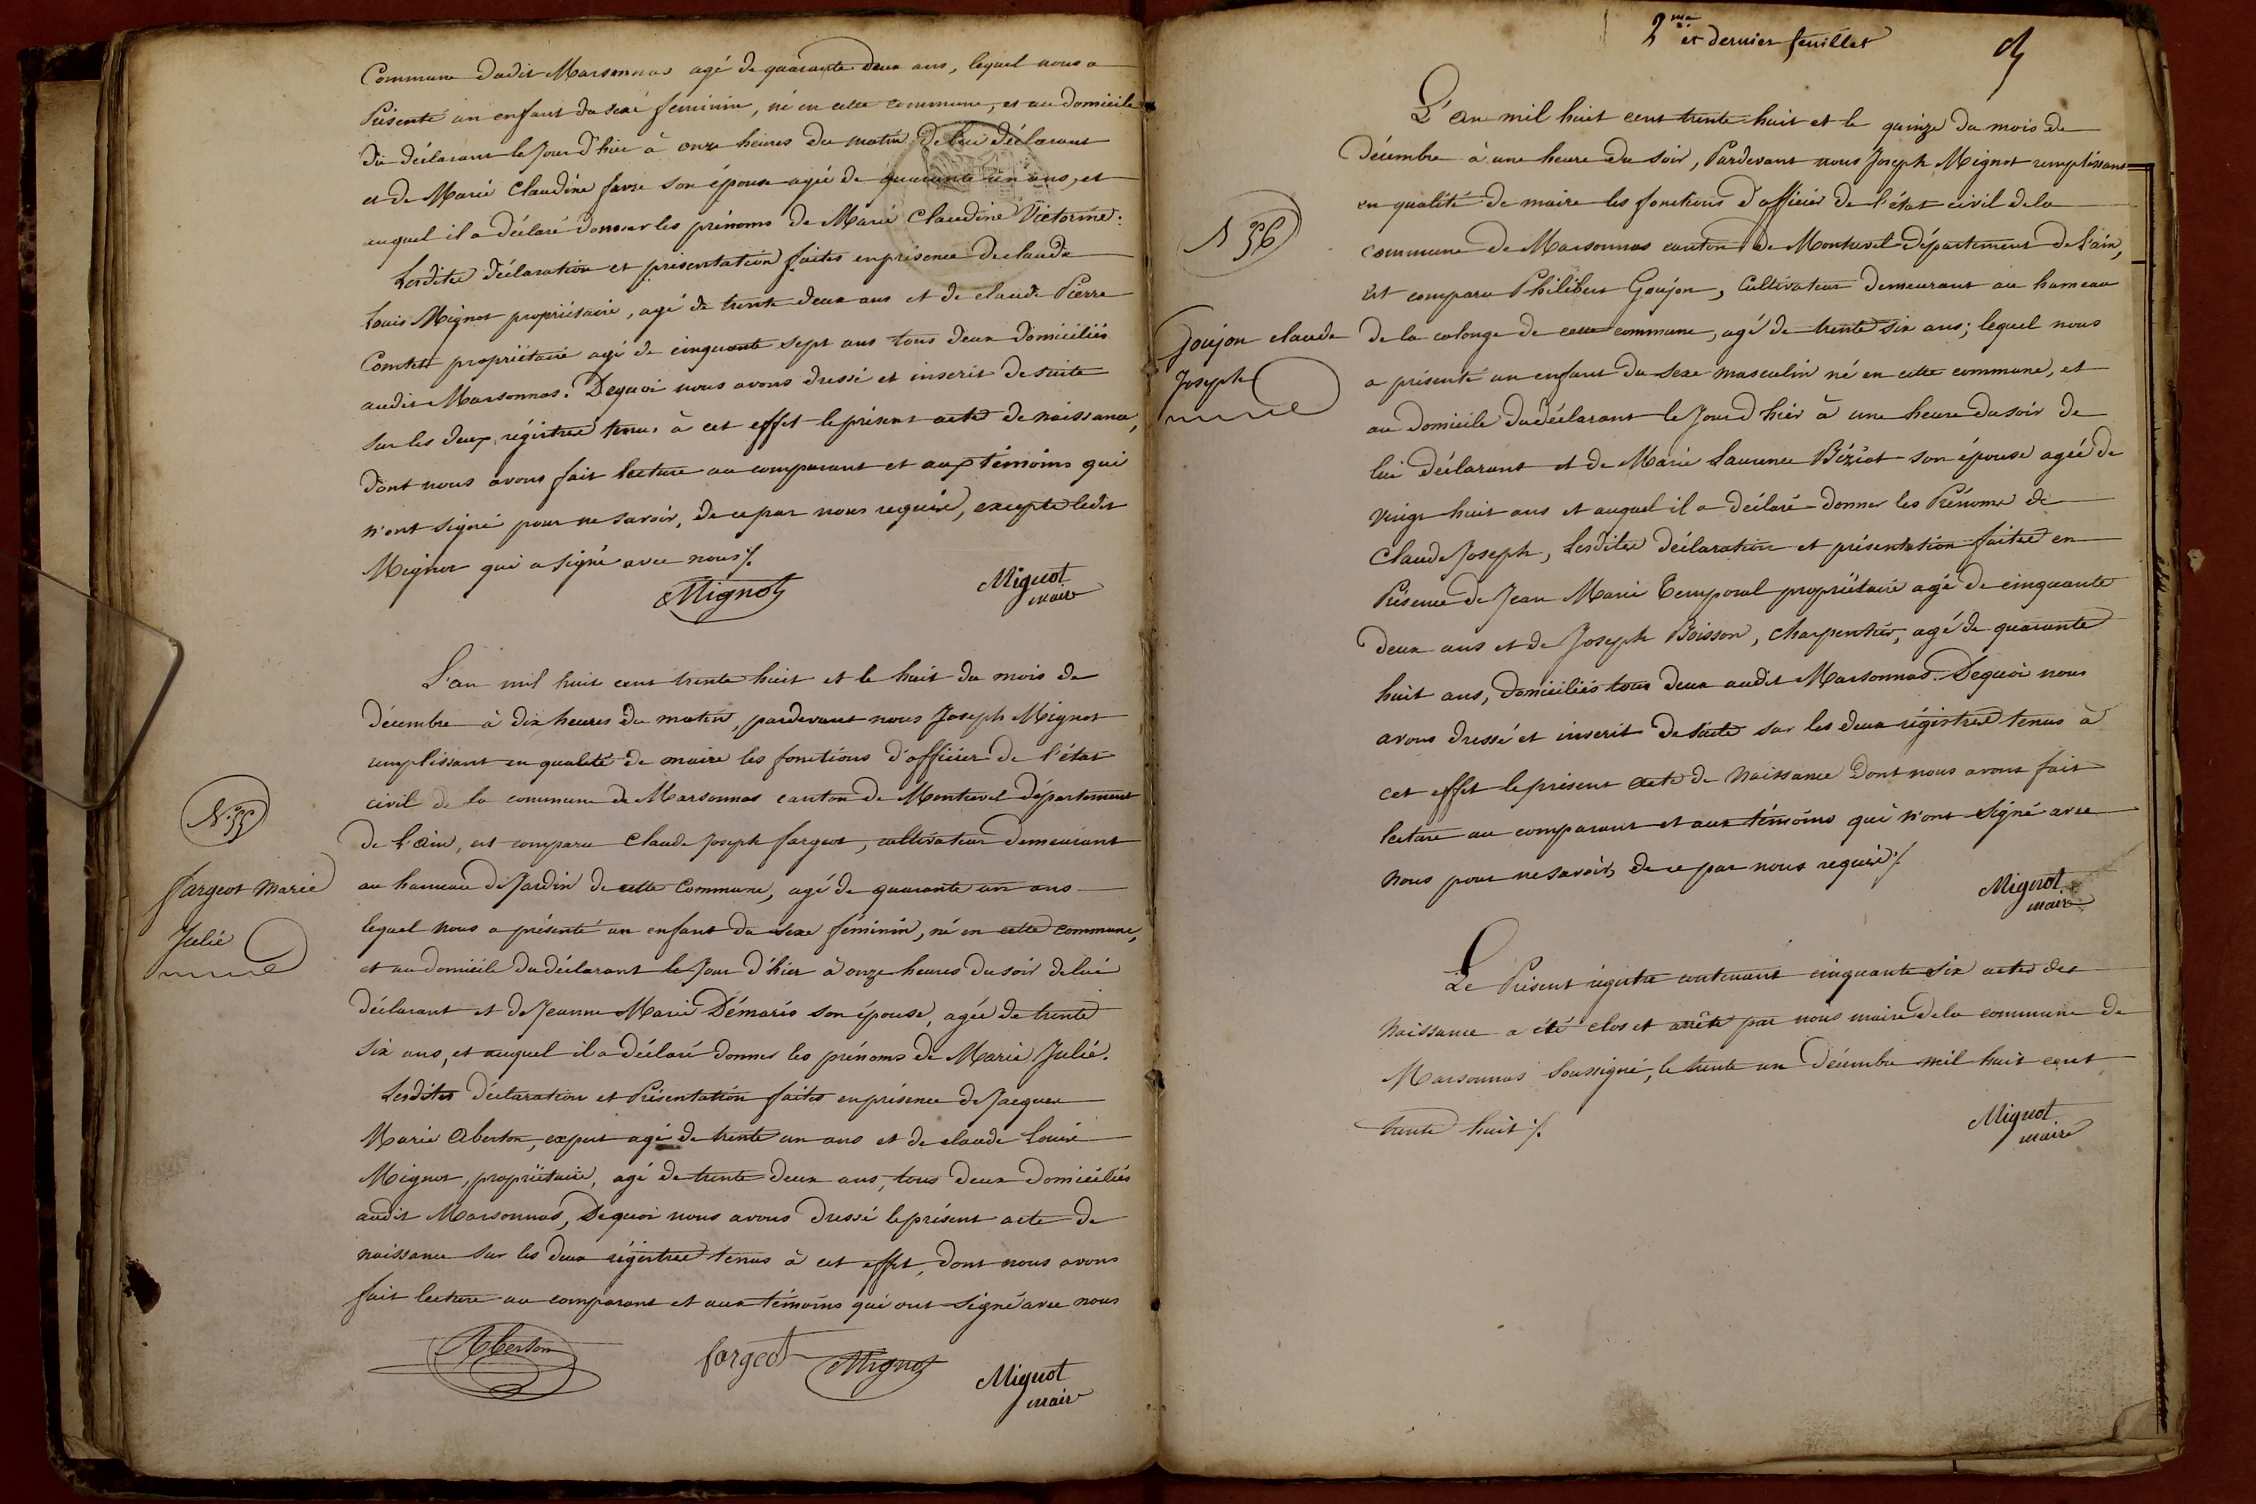 Commune dudit Marsonnas agé de quarante deux ans, lequel nous a
Présenté un enfant du sexe feminin, né en cette commune, et au domicile
du déclarant le Jour d'hier à onze heures du matin de lui déclarant
et de Marie Claudine favre son épouse agée de quarante un ans, et
auquel il a déclaré donner les prénoms de Marie Claudine Victorine.
Lesdites déclaration et présentation faites en présence de claude
Louis Mignot propriétaire, agé de trente deux ans et de claude Pierre
Comtet propriétaire agé de cinquante sept ans tous deux domiciliés
audit Marsonnas. Dequoi nous avons dressé et inscrit de suite
sur les deux régistres tenus à cet effet le présent acte de naissance,
dont nous avons fait lecture au comparant et aux témoins qui
n'ont signé pour ne savoir, de ce par nous requis, excepté ledit
Mignot qui a signé avec nous ./.
Mignot
Mignot
maire
N°. 55
Fargeot Marie
Julie
L'an mil huit cent trente huit et le huit du mois de
décembre à dix heures du matin, pardevant nous Joseph Mignot
remplissant en qualité de maire les fonctions d'officier de l'état
civil de la commune de Marsonnas canton de Montrevel département
de l'ain, est comparu Claude Joseph fargeot, cultivateur demeurant
au hameau de Jardin de cette Commune, agé de quarante un ans
lequel nous a présenté un enfant du sexe féminin, né en cette commune,
et au domicile du déclarant le Jour d'hier à onze heures du soir de lui
déclarant et de Jeanne Marie Démaris son épouse, agée de trente
six ans, et auquel il a déclaré donner les prénoms de Marie Julie.
Lesdites déclaration et Présentation faites en présence de Jacques
Marie Aberton, expert agé de trente un ans et de claude Louis
Mignot, propriétaire, agé de trente deux ans, tous deux domiciliés
audit Marsonnas, Dequoi nous avons dressé le présent acte de
naissance sur les deux régistres tenus à cet effet, dont nous avons
fait lecture au comparant et aux témoins qui ont signé avec nous
Aberton
fargeot
Mignot
Mignot
maire
2me
et dernier feuillet
N 56
Goujon claude
Joseph
L'an mil huit cent trente-huit et le quinze du mois de
Décembre à une heure du soir, Pardevant nous Joseph Mignot remplissant
en qualité de maire les fonctions d'officier de l'état civil de la
commune de Marsonnas canton de Montrevel département de l'ain,
est comparu Philibert Goujon, Cultivateur demeurant au hameau
de la colonge de cette commune, agé de trente six ans; lequel nous
a présenté un enfant du sexe masculin né en cette commune, et
au domicile du déclarant le Jour d'hier à une heure du soir de
lui déclarant et de Marie Laurence Béziat son épouse agée de
vingt huit ans et auquel il a déclaré donner les Prénoms de
Claude Joseph, Lesdites déclaration et présentation faites en
Présence de Jean Marie Temporal propriétaire agé de cinquante
deux ans et de Joseph Boisson, charpentier, agé de quarante
huit ans, domiciliés tous deux audit Marsonnas. Dequoi nous
avons dressé et inscrit de suite sur les deux régistres tenus à
cet effet le présent acte de Naissance Dont nous avons fait
lecture au comparant et aux témoins qui n'ont signé avec
nous pour ne savoir, de ce par nous requis ./.
Mignot
maire
Le Présent régistre contenant cinquante six actes de
Naissance a été clos et arrêté par nous maire de la commune de
Marsonnas soussigné, le trente un Décembre mil huit cent
trente huit ./.
Mignot
maire